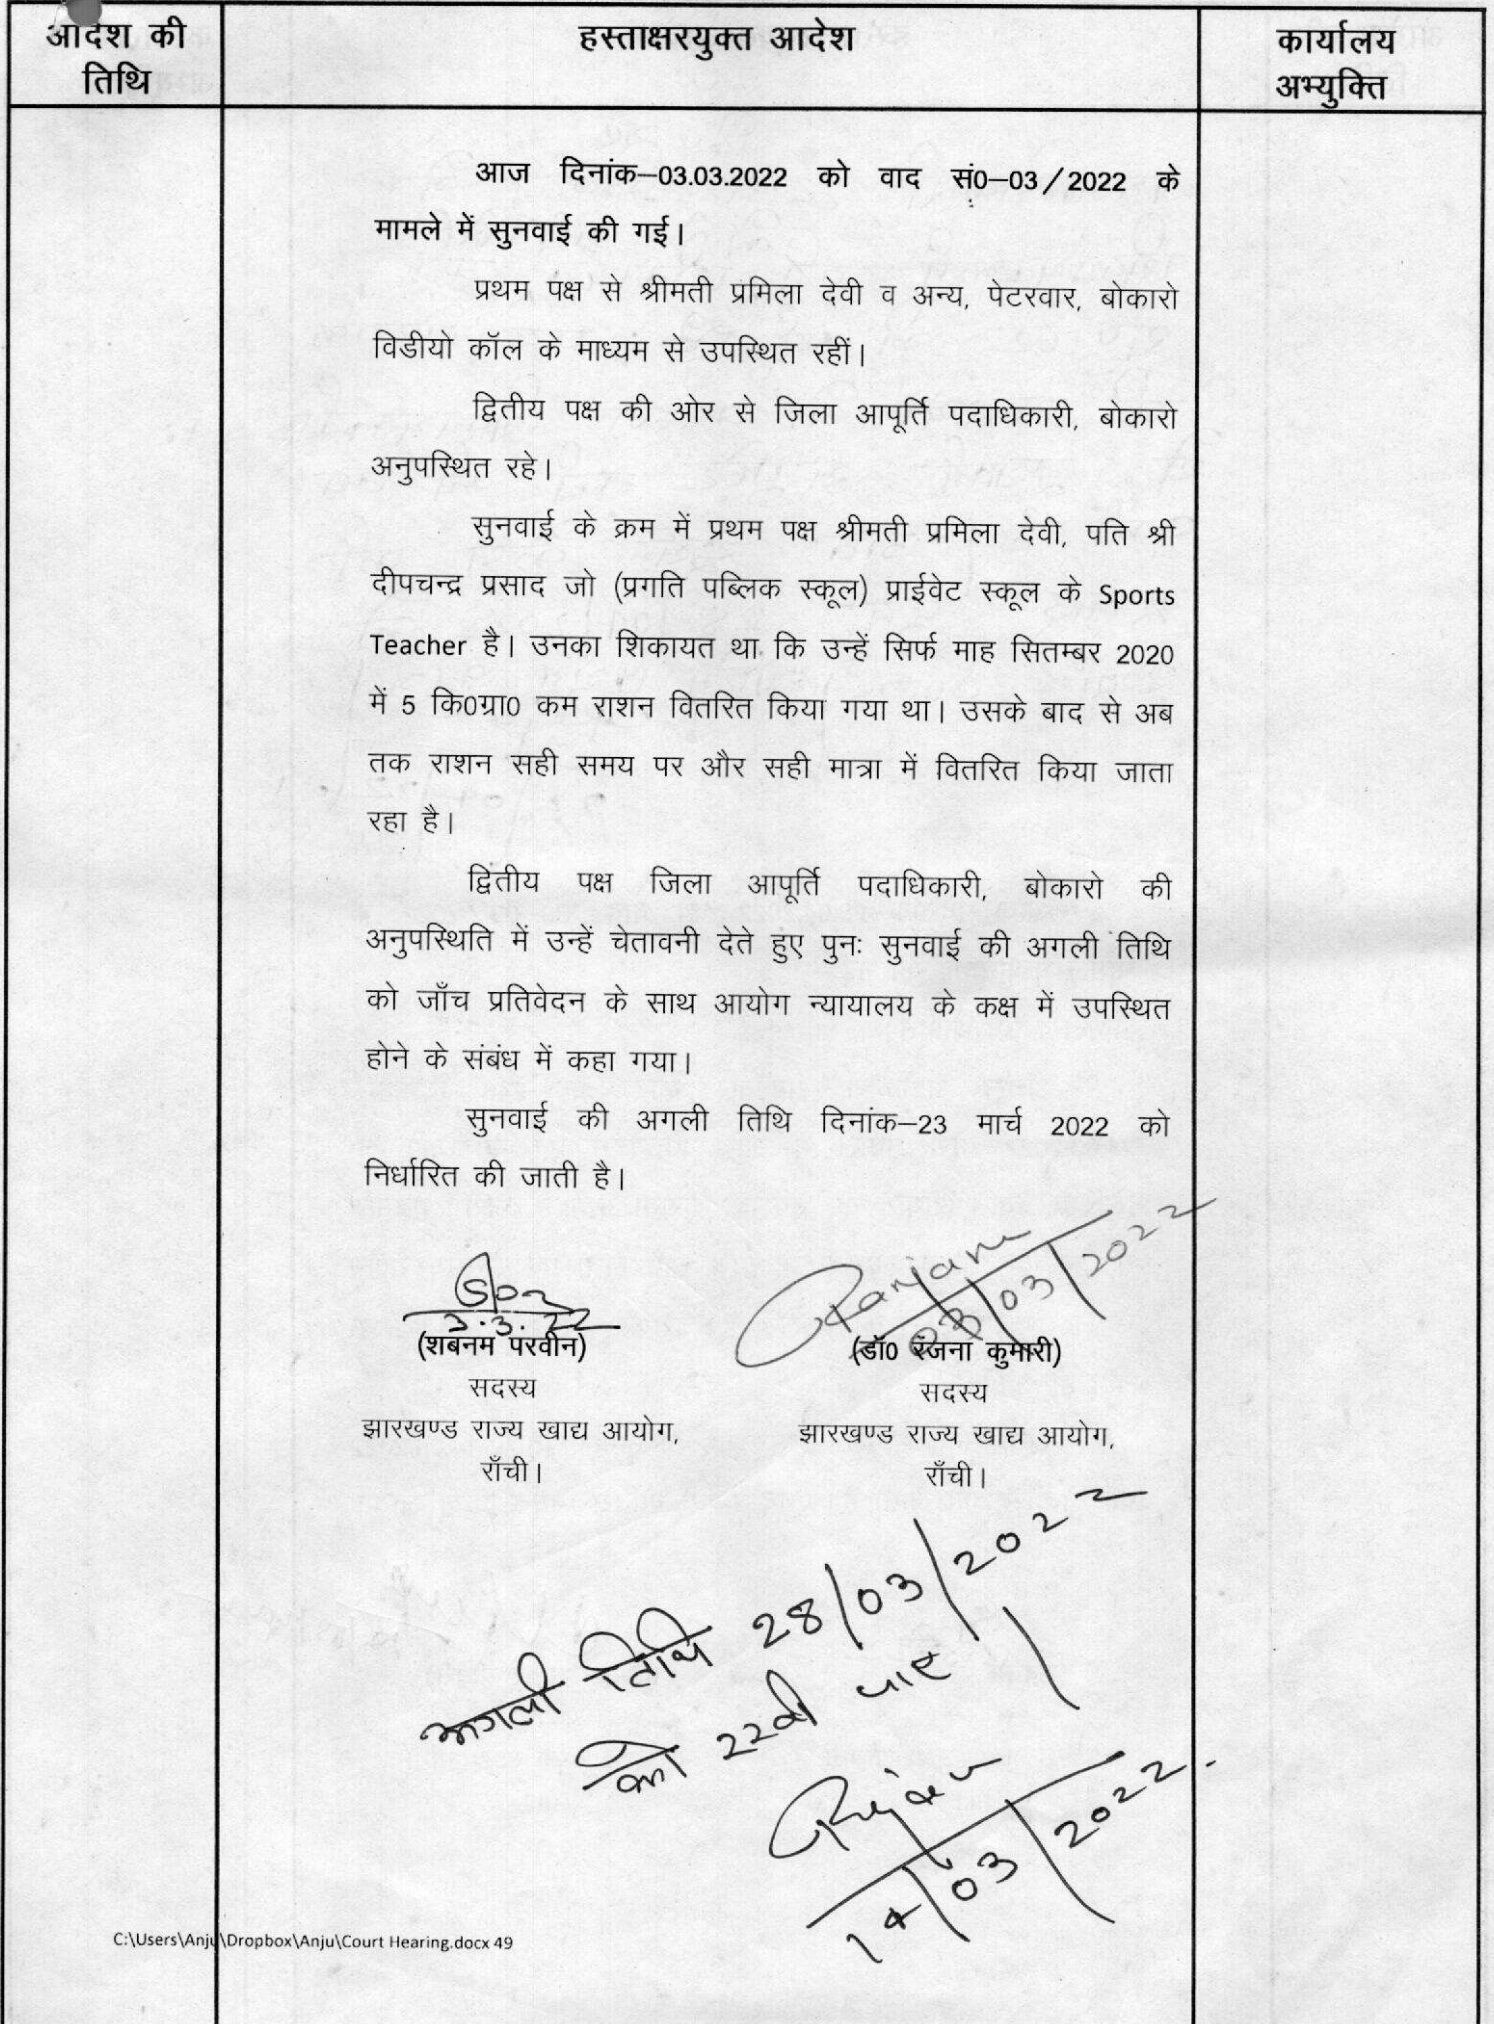 आदेश की
तिथि
हस्ताक्षरयुक्त आदेश
कार्यालय
अभ्युक्ति
आज दिनांक–03.03.2022 को वाद सं0–03/2022 के
मामले में सुनवाई की गई।
प्रथम पक्ष से श्रीमती प्रमिला देवी व अन्य, पेटरवार, बोकारो
विडीयो कॉल के माध्यम से उपस्थित रहीं।
द्वितीय पक्ष की ओर से जिला आपूर्ति पदाधिकारी, बोकारो
अनुपस्थित रहे।
सुनवाई के क्रम में प्रथम पक्ष श्रीमती प्रमिला देवी, पति श्री
दीपचन्द्र प्रसाद जो (प्रगति पब्लिक स्कूल) प्राईवेट स्कूल के Sports
Teacher है। उनका शिकायत था कि उन्हें सिर्फ माह सितम्बर 2020
में 5 कि0ग्रा0 कम राशन वितरित किया गया था। उसके बाद से अब
तक राशन सही समय पर और सही मात्रा में वितरित किया जाता
रहा है।
द्वितीय पक्ष जिला आपूर्ति पदाधिकारी, बोकारो की
अनुपस्थिति में उन्हें चेतावनी देते हुए पुनः सुनवाई की अगली तिथि
को जाँच प्रतिवेदन के साथ आयोग न्यायालय के कक्ष में उपस्थित
होने के संबंध में कहा गया।
सुनवाई की अगली तिथि दिनांक–23 मार्च 2022 को
निर्धारित की जाती है।
3.3.22
Ranjana
03/03/2022
(शबनम परवीन)
सदस्य
झारखण्ड राज्य खाद्य आयोग,
राँची।
(डॉ0 रंजना कुमारी)
सदस्य
झारखण्ड राज्य खाद्य आयोग,
राँची।
अगली तिथि 28/03/2022
को
14/03/2022.
C:\Users\Anju\Dropbox\Anju\Court Hearing.docx 49